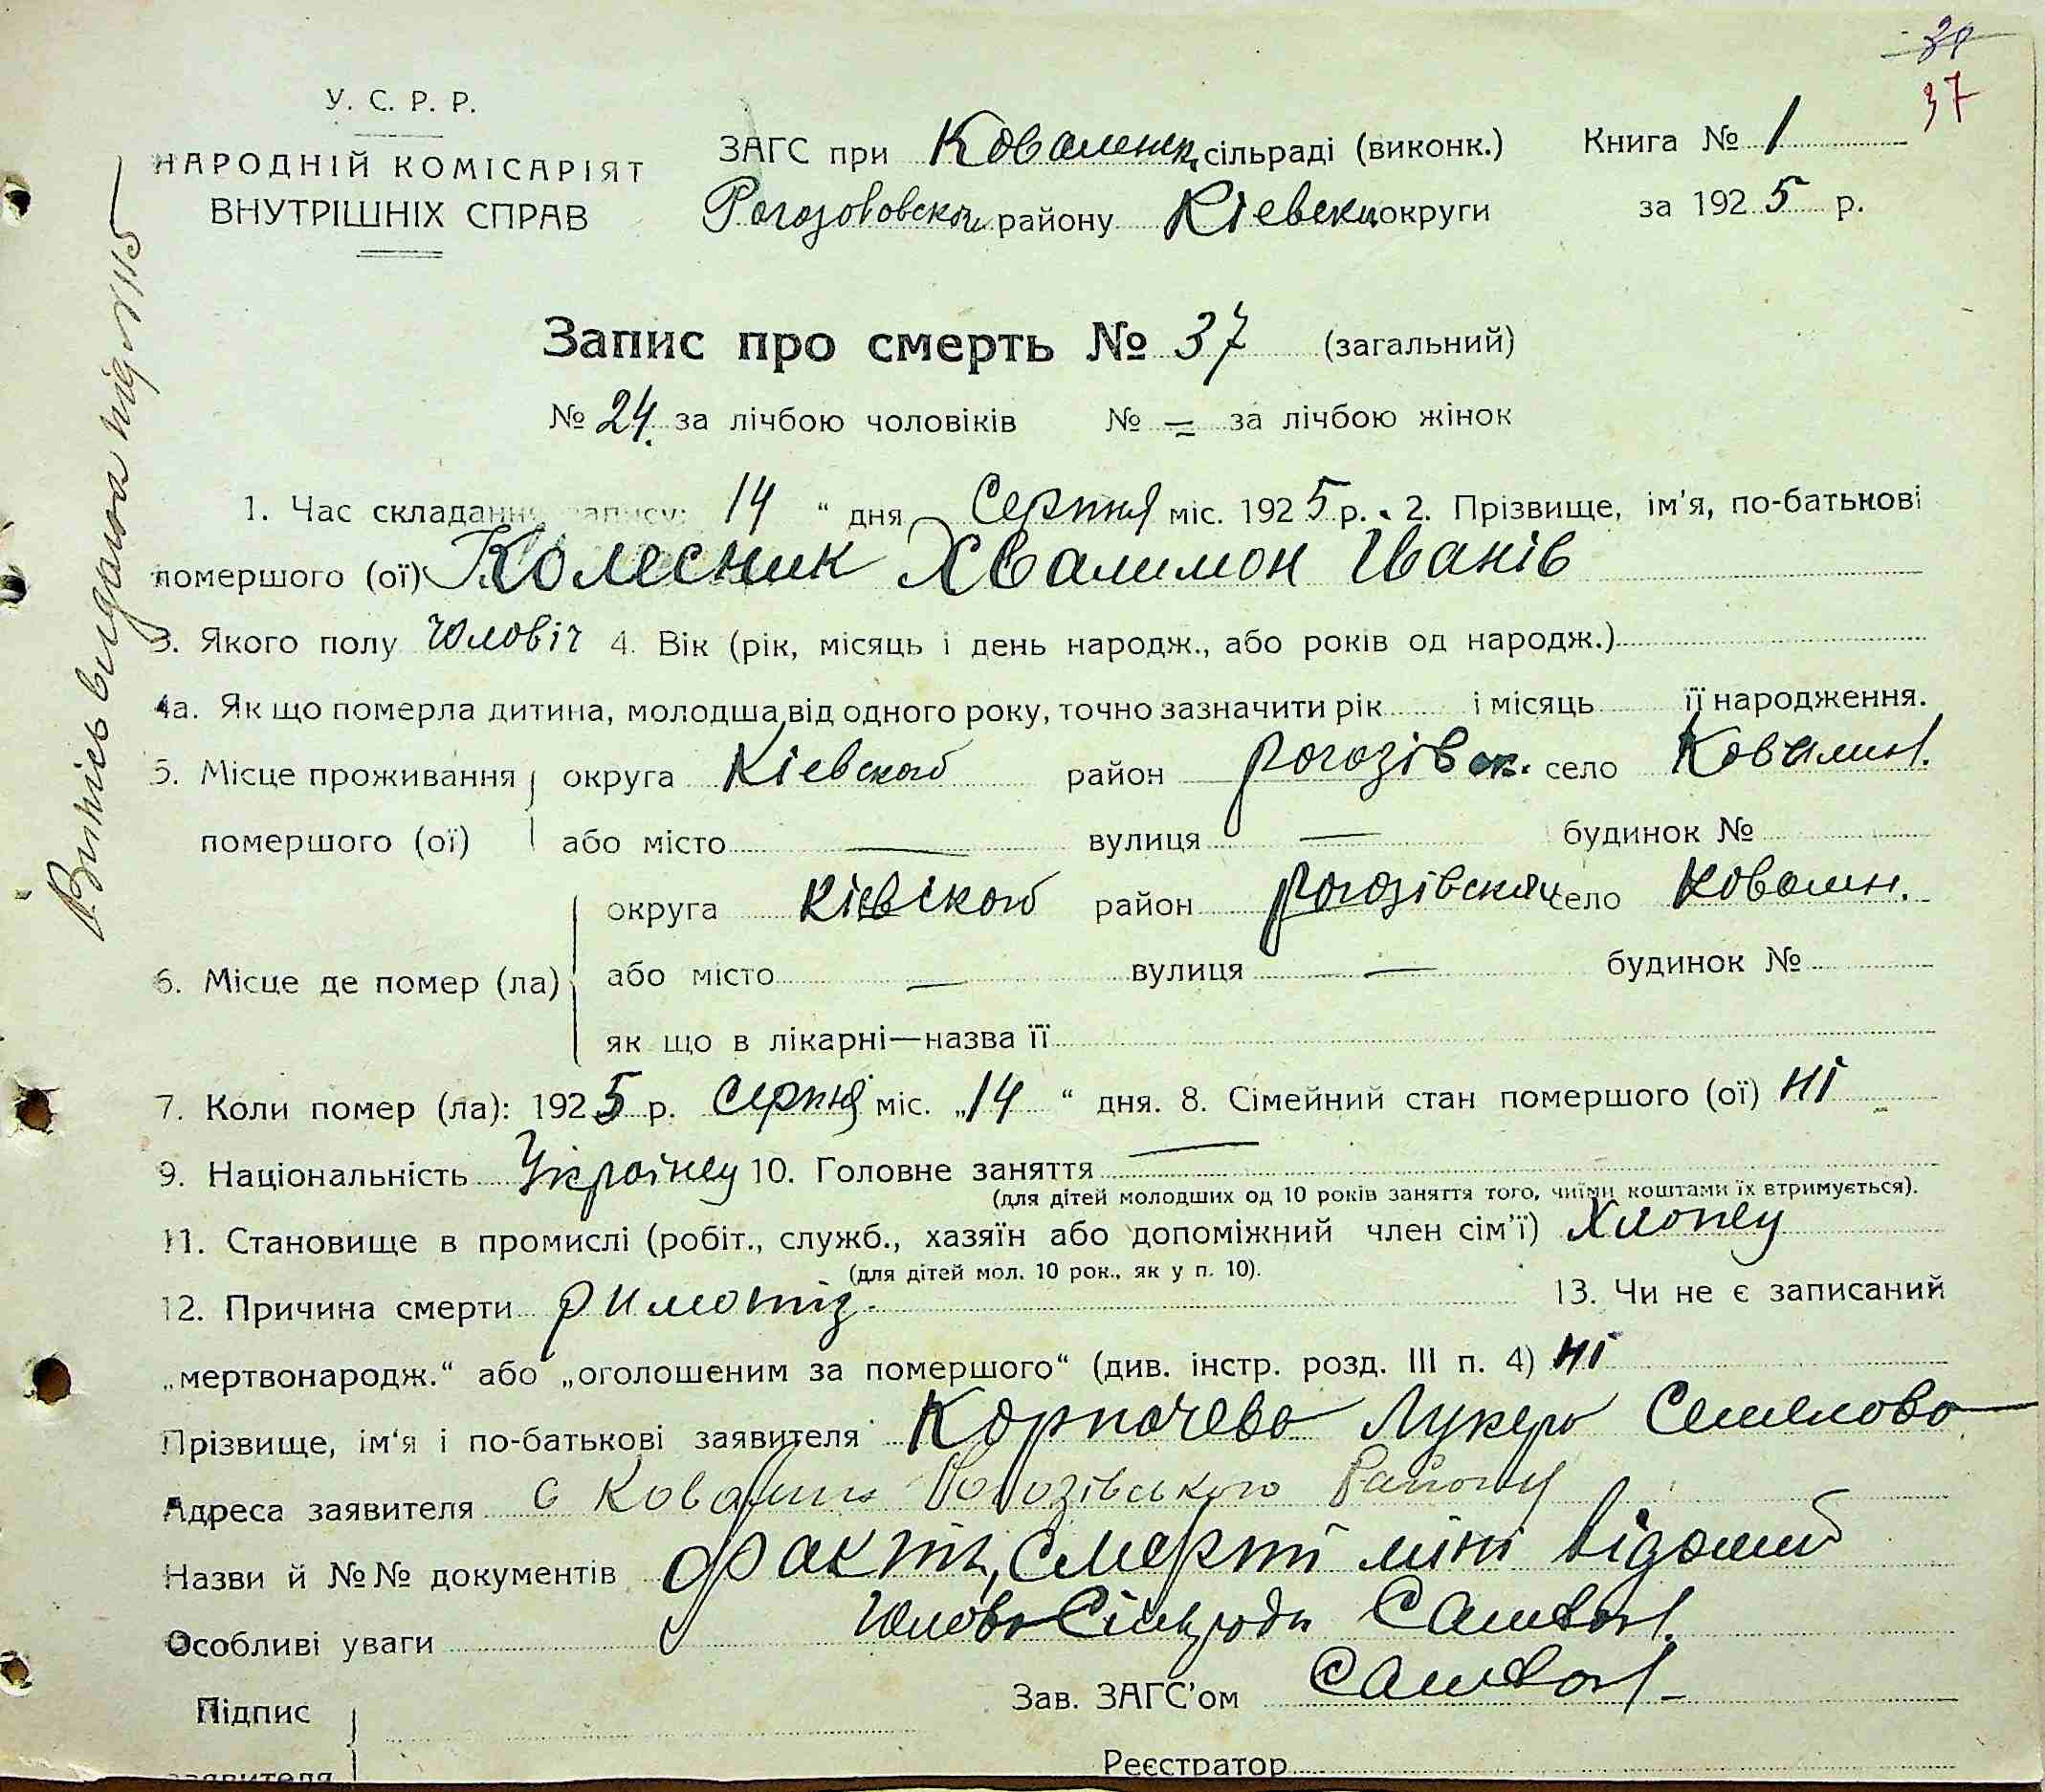 37
У. С. Р. Р.
НАРОДНІЙ КОМІСАРІЯТ
ВНУТРІШНІХ СПРАВ
ЗАГС при сільраді (виконк.)
району округи
Книга № 1
за 1925 р.
Запис про смерть № 37 (загальний)
№ 24. за лічбою чоловіків № = за лічбою жінок
1. Час складання запису: 14 " дня Серпня міс. 1925 р. 2. Прізвище, ім'я, по-батькові
помершого (ої) Колесник Хвалимон Іванів
3. Якого полу Чоловіч 4. Вік (рік, місяць і день народж., або років од народж.)
4а. Як що померла дитина, молодша від одного року, точно зазначити рік і місяць її народження.
5. Місце проживання округа Кіевского район Рогозівск. село Ковалин.
помершого (ої) або місто — вулиця — будинок №
округа Кіевского район село Ковалин.
6. Місце де помер (ла) або місто — вулиця — будинок №
як що в лікарні—назва її
7. Коли помер (ла): 1925 р. Серпня міс. „14 " дня. 8. Сімейний стан помершого (ої) ні
9. Національність Українец 10. Головне заняття —
(для дітей молодших од 10 років заняття того, чиїми коштами їх втримується).
11. Становище в промислі (робіт., служб., хазяїн або допоміжний член сім'ї) Хлопец
(для дітей мол. 10 рок., як у п. 10).
12. Причина смерти 13. Чи не є записаний
„мертвонародж." або „оголошеним за помершого" (див. інстр. розд. III п. 4) ні
Прізвище, ім'я і по-батькові заявителя Лукера Семенова
Адреса заявителя с Ковалин Рогозівського Району
Назви й №№ документів факт смерті міні відомий
Особливі уваги Голова Сільради
Підпис
Зав. ЗАГС'ом
заявителя
Реєстратор
Випись видана під №115